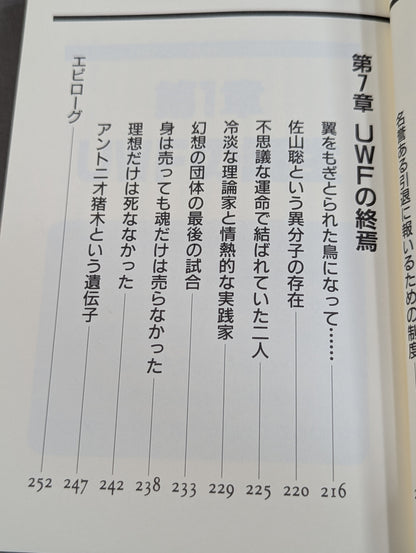 名誉ある引退に報いるための制度
第7章 UWFの終焉
翼をもぎとられた鳥になって…… 216
佐山聡という異分子の存在 220
不思議な運命で結ばれていた二人 225
冷淡な理論家と情熱的な実践家 229
幻想の団体の最後の試合 233
身は売っても魂だけは売らなかった 238
理想だけは死ななかった 242
アントニオ猪木という遺伝子 247
エピローグ 252